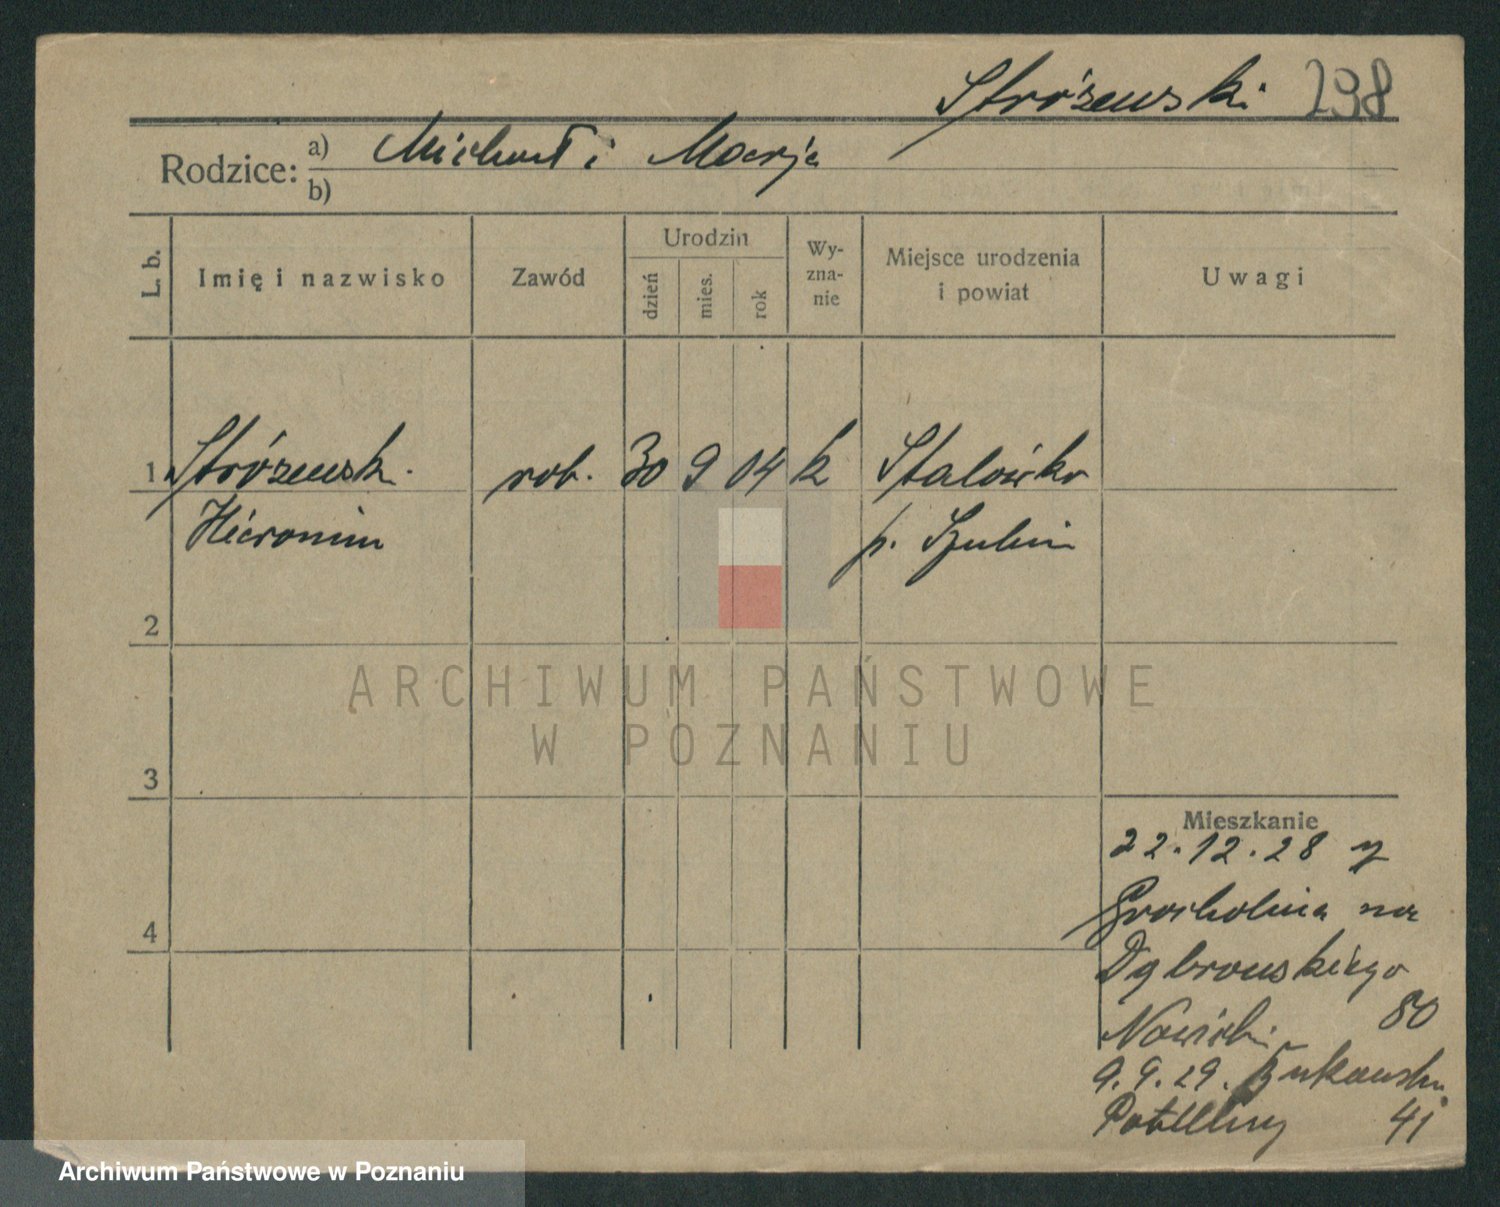 Stróżewski 238
Rodzice: a) Michał i Marja
b)
L. b. Imię i nazwisko Zawód Urodzin Wy-zna-nie Miejsce urodzenia i powiat Uwagi
dzień mies. rok
1 Stróżewski rob. 30 9 04 k
Hieronim p. Szubin
2
3
4
Mieszkanie
22.12.28 z
na
Dąbrowskiego
Nowicki 80
9.9.29. Bukowska
41
ARCHIWUM PAŃSTWOWE
W POZNANIU
Archiwum Państwowe w Poznaniu